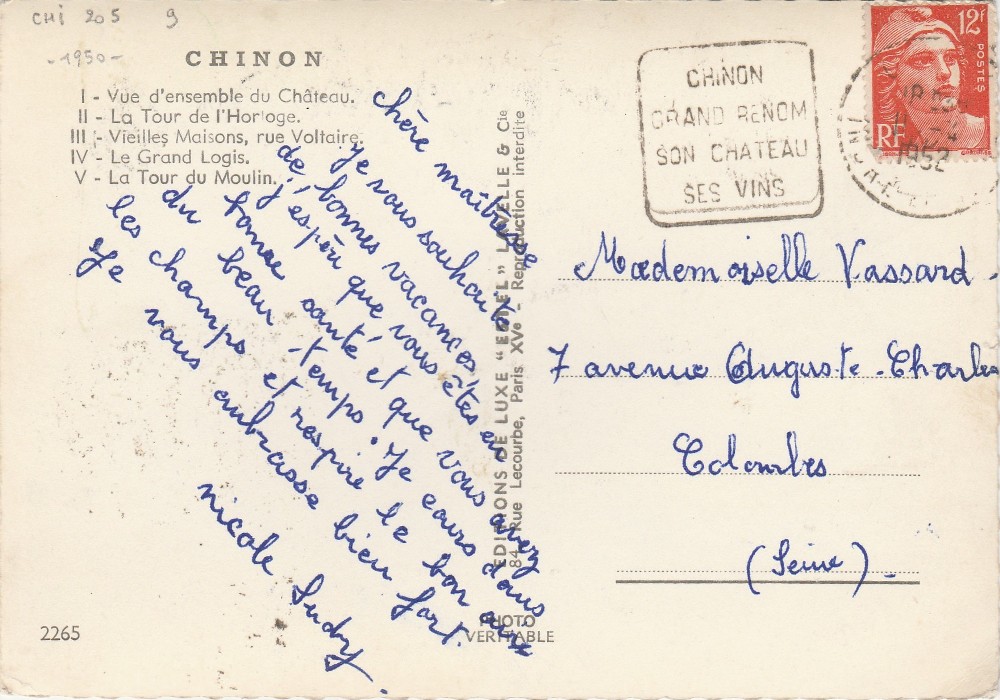 CHI 205 9
-1950-
CHINON
I - Vue d'ensemble du Château.
II - La Tour de l'Horloge.
III - Vieilles Maisons, rue Voltaire.
IV - Le Grand Logis.
V - La Tour du Moulin.
chère maîtresse
je vous souhaite
de bonnes vacances,
j'espèu que vous êtes en
bonne santé et que vous avez
du beau temps. Je cours dans
les champs et respire le bon air
Je vous embrasse bien fort.
nicole
EDITIONS DE LUXE "ESTEL" LAVELLE & Cie
84, Rue Lecourbe, Paris XVe - Reproduction interdite
PHOTO
VERITABLE
2265
CHINON
GRAND RENOM
SON CHATEAU
SES VINS
12F
POSTES
RF
1952
Mademoiselle Vassard.
7 avenue Auguste-Charles
Colombes
(Seine).